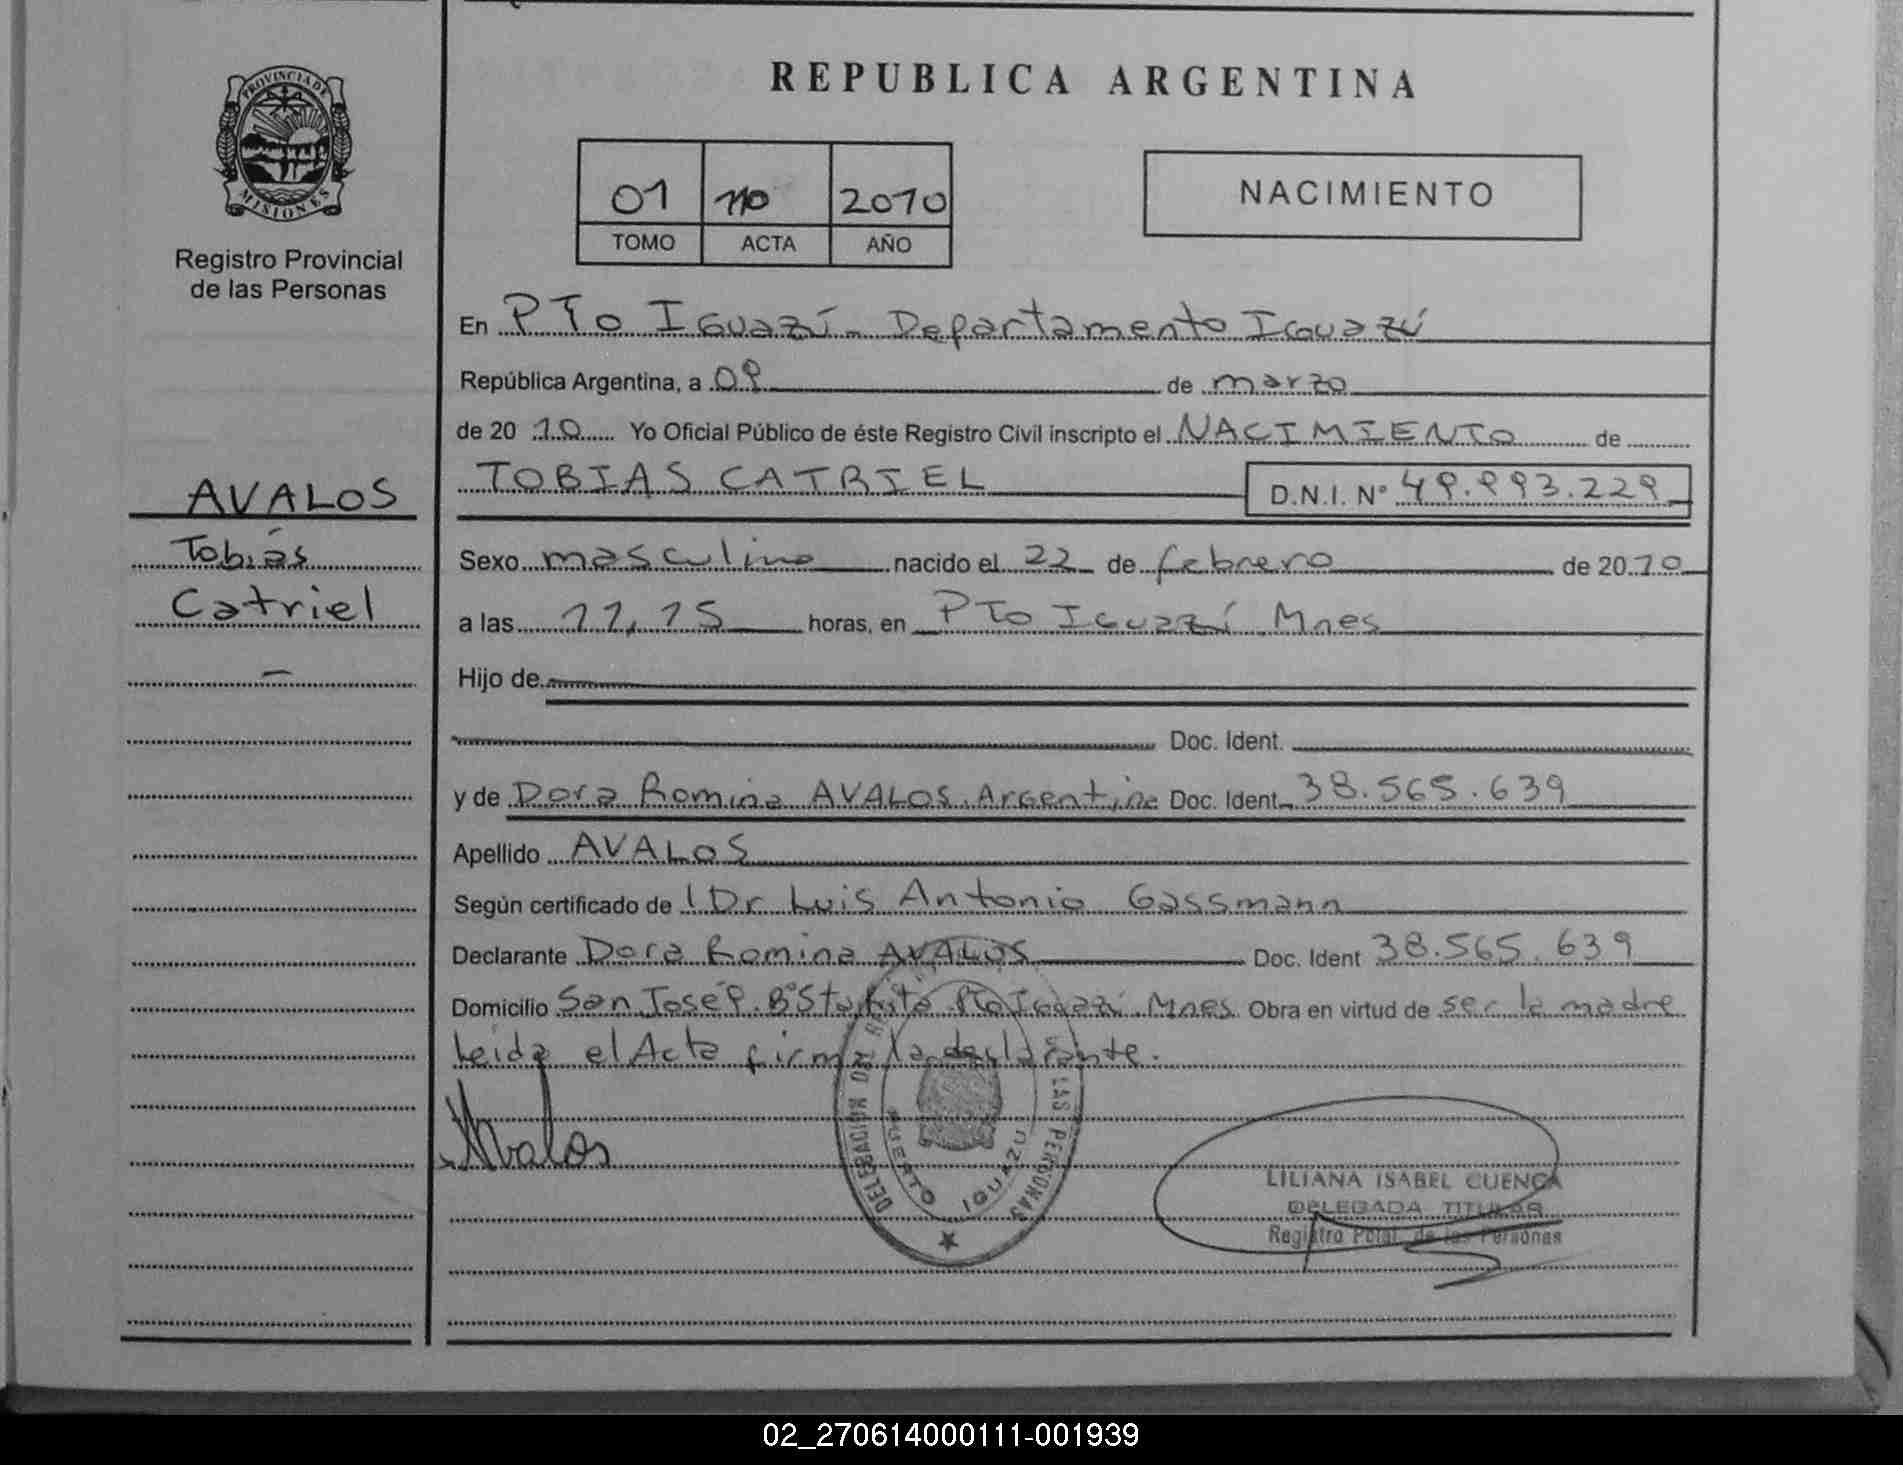 REPUBLICA ARGENTINA
PROVINCIA DE
MISIONES
Registro Provincial
de las Personas
01 110 2010
TOMO ACTA AÑO
NACIMIENTO
En PTo Iguazú - Departamento Iguazú
República Argentina, a 09 de marzo
de 20 10 Yo Oficial Público de éste Registro Civil inscripto el NACIMIENTO de
TOBIAS CATRIEL D.N.I. Nº 49.993.229
AVALOS
Tobias
Catriel
Sexo masculino nacido el 22 de febrero de 20 10
a las 11,15 horas, en PTo Iguazú Mnes
Hijo de
Doc. Ident.
y de Dora Romina AVALOS. Argentina Doc. Ident. 38.565.639
Apellido AVALOS
Según certificado de l Dr Luis Antonio Gassmann
Declarante Dora Romina AVALOS Doc. Ident 38.565.639
Domicilio San José P. Bº Sta PTo Iguazú. Mnes. Obra en virtud de ser la madre
Leida el Acta firma la declarante.
Avalos
DELEGACION LAS PERSONAS
PUERTO IGUAZU
LILIANA ISABEL CUENCA
DELEGADA TITULAR
Registro Pcial. de las Personas
02_270614000111-001939